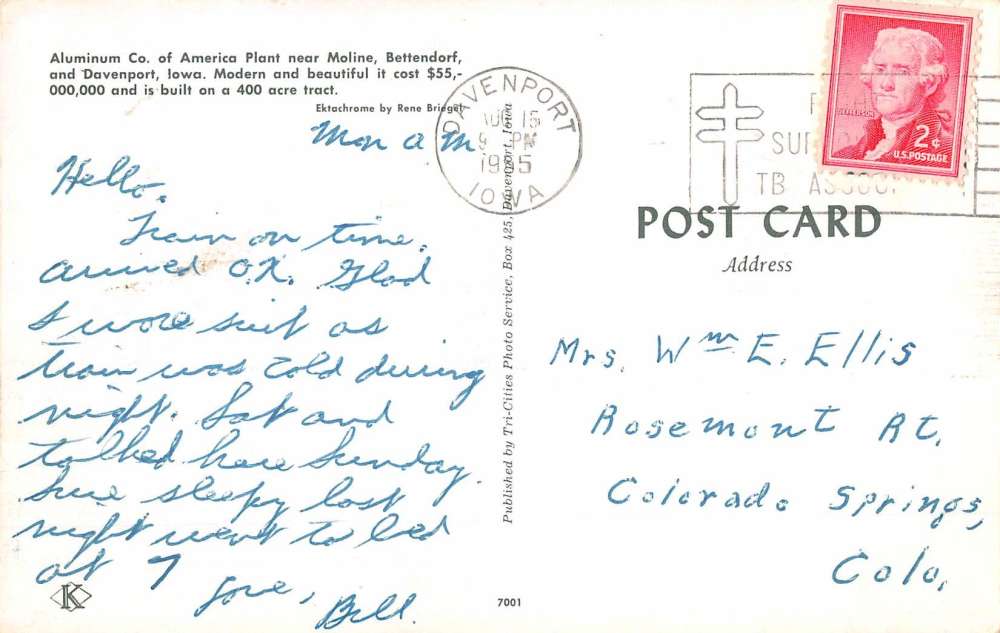 Aluminum Co. of America Plant near Moline, Bettendorf,
and Davenport, Iowa. Modern and beautiful it cost $55,-
000,000 and is built on a 400 acre tract.
Ektachrome by Rene Briegel
Mon a M
Hello.
Train on time.
arrived O.K. Glad
I wore suit as
train was cold during
night. Sat and
talked here Sunday.
Sure sleepy last
night went to bed
at 7
Love,
Bill.
K
7001
Published by Tri-Cities Photo Service, Box 425, Davenport, Iowa
DAVENPORT
AUG 15
9 PM
1955
IOWA
TB ASSOC
JEFFERSON
2¢
U.S. POSTAGE
POST CARD
Address
Mrs. Wm E. Ellis
Rosemont Rt.
Colorado Springs,
Colo.